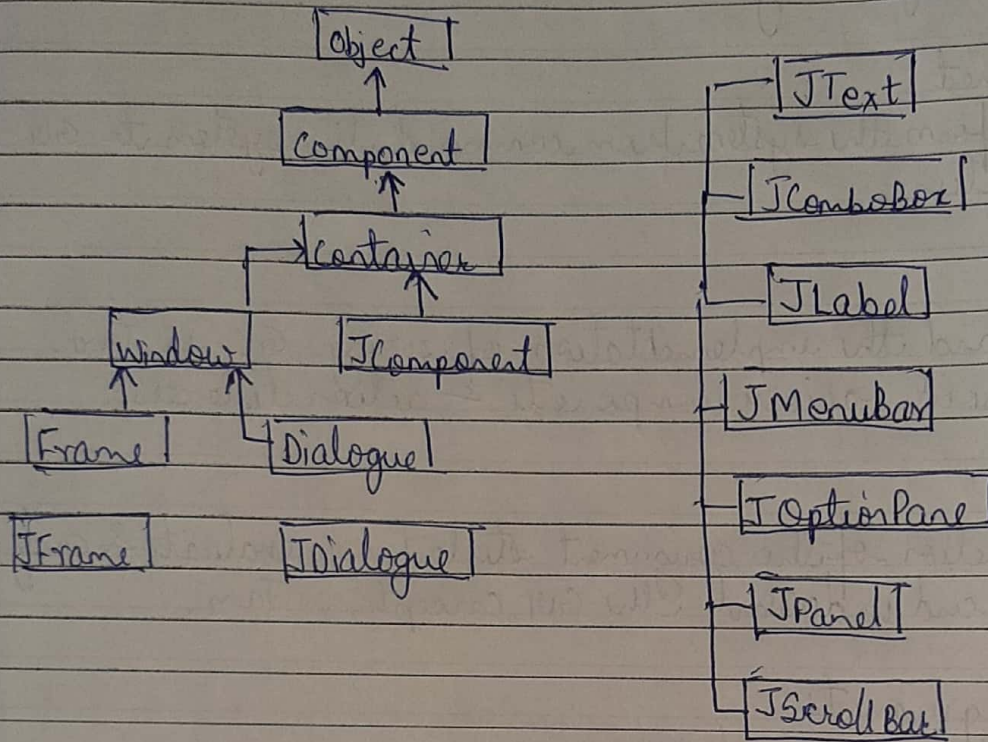 Object
Component
Container
Window
JComponent
Frame
Dialogue
JFrame
JDialogue
JText
JComboBox
JLabel
JMenuBar
JOptionPane
JPanel
JScrollBar